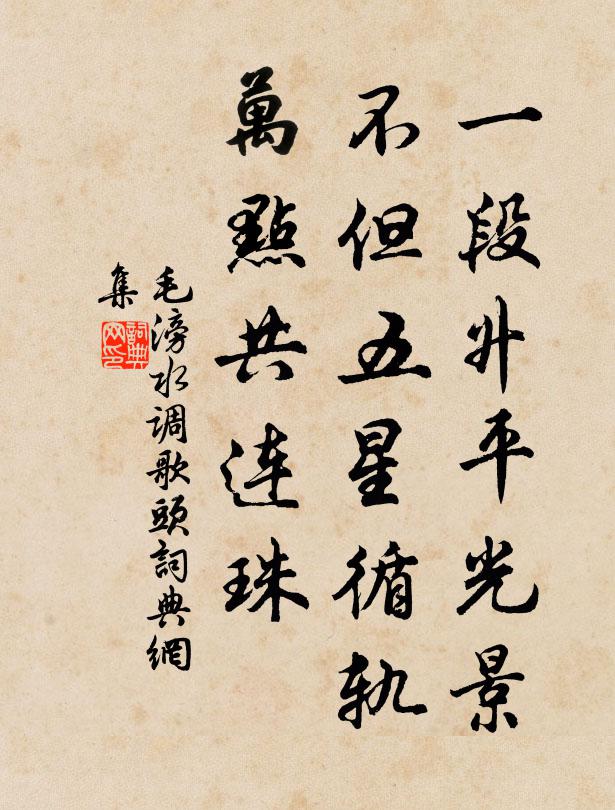 一段升平光景
不但五星循轨
萬點共連珠
毛滂水调歌頭詞典網
集
詞典网印